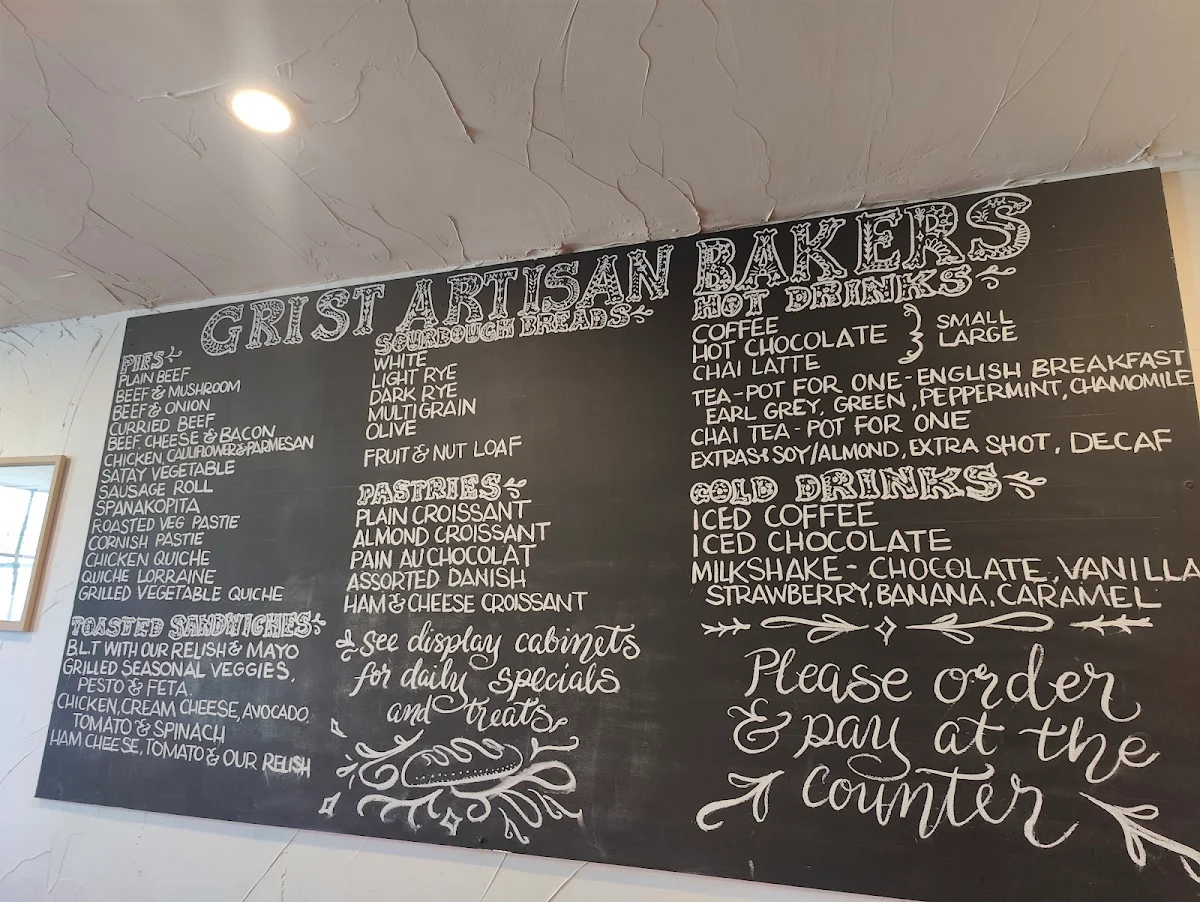 GRIST ARTISAN BAKERS
PIES
PLAIN BEEF
BEEF & MUSHROOM
BEEF & ONION
CURRIED BEEF
BEEF CHEESE & BACON
CHICKEN, CAULIFLOWER & PARMESAN
SATAY VEGETABLE
SAUSAGE ROLL
SPANAKOPITA
ROASTED VEG PASTIE
CORNISH PASTIE
CHICKEN QUICHE
QUICHE LORRAINE
GRILLED VEGETABLE QUICHE
TOASTED SANDWICHES
B.L.T WITH OUR RELISH & MAYO
GRILLED SEASONAL VEGGIES,
PESTO & FETA.
CHICKEN, CREAM CHEESE, AVOCADO,
TOMATO & SPINACH
HAM CHEESE, TOMATO & OUR RELISH
SOURDOUGH BREADS
WHITE
LIGHT RYE
DARK RYE
MULTIGRAIN
OLIVE
FRUIT & NUT LOAF
PASTRIES
PLAIN CROISSANT
ALMOND CROISSANT
PAIN AU CHOCOLAT
ASSORTED DANISH
HAM & CHEESE CROISSANT
see display cabinets
for daily specials
and treats
HOT DRINKS
COFFEE
HOT CHOCOLATE
CHAI LATTE
SMALL
LARGE
TEA-POT FOR ONE - ENGLISH BREAKFAST
EARL GREY, GREEN, PEPPERMINT, CHAMOMILE
CHAI TEA-POT FOR ONE
EXTRAS: SOY/ALMOND, EXTRA SHOT, DECAF
COLD DRINKS
ICED COFFEE
ICED CHOCOLATE
MILKSHAKE - CHOCOLATE, VANILLA
STRAWBERRY, BANANA, CARAMEL
Please order
& pay at the
counter